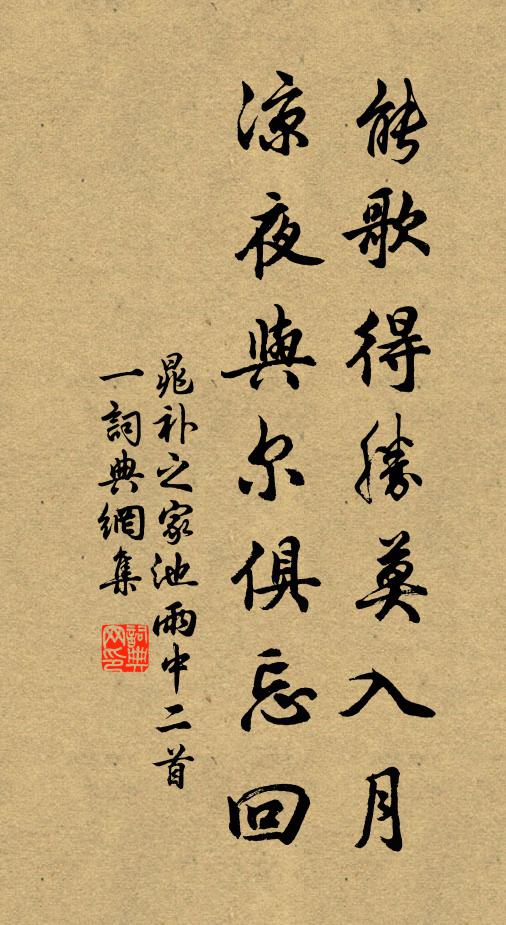 能歌得勝莫入月
凉夜與尔俱忘回
晁补之家池雨中二首
一詞典網集
詞典网印